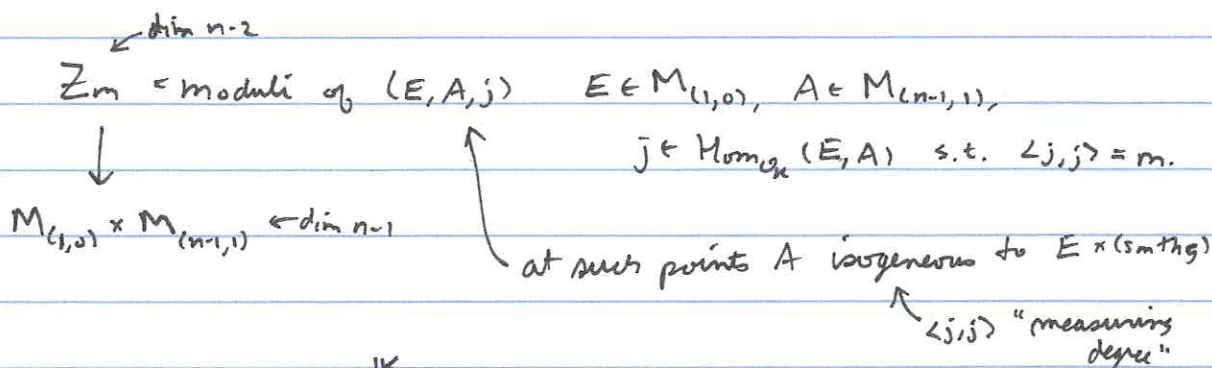 dim n-2
Zm = moduli of (E, A, j) E ∈ M(1,0), A ∈ M(n-1,1),
j ∈ Hom_{O_K} (E, A) s.t. <j,j> = m.
M(1,0) × M(n-1,1) ← dim n-1
at such points A isogeneous to E × (smthg)
<j,j> "measuring
degree"